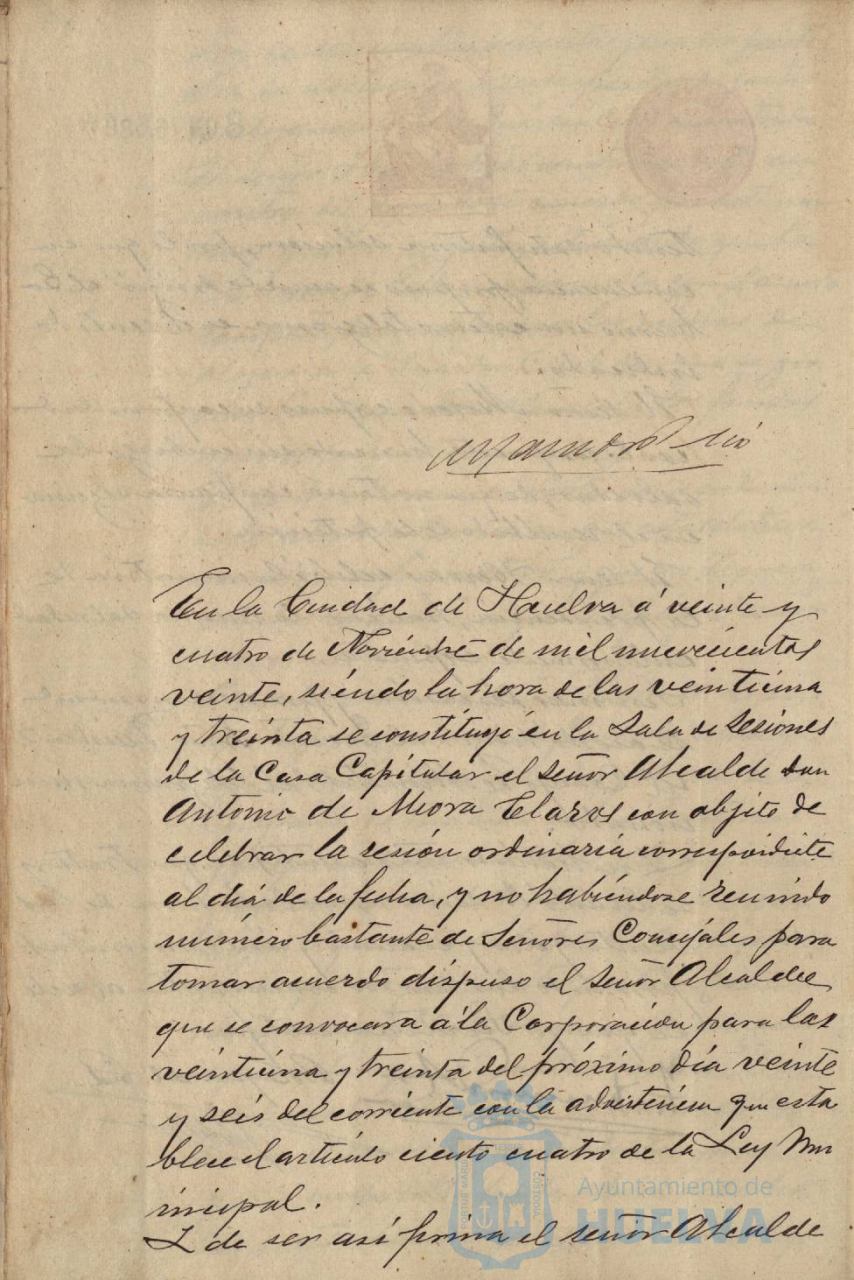 En la Ciudad de Huelva á veinte y
cuatro de Noviembre de mil novecientos
veinte, siendo la hora de las veintiuna
y treinta se constituyó en la Sala de Sesiones
de la Casa Capitular el señor Alcalde don
Antonio de Mora Claros con objeto de
celebrar la sesión ordinaria correspondiente
al diá de la fecha, y no habiéndose reunido
número bastante de Señores Concejales para
tomar acuerdo dispuso el señor Alcalde
que se convocara á la Corporación para las
veintiuna y treinta del próximo día veinte
y seis del corriente con la advertencia que esta
blece el artículo ciento cuatro de la Ley Mu
nicipal.
Y de ser así firma el señor Alcalde
Ayuntamiento de
HUELVA